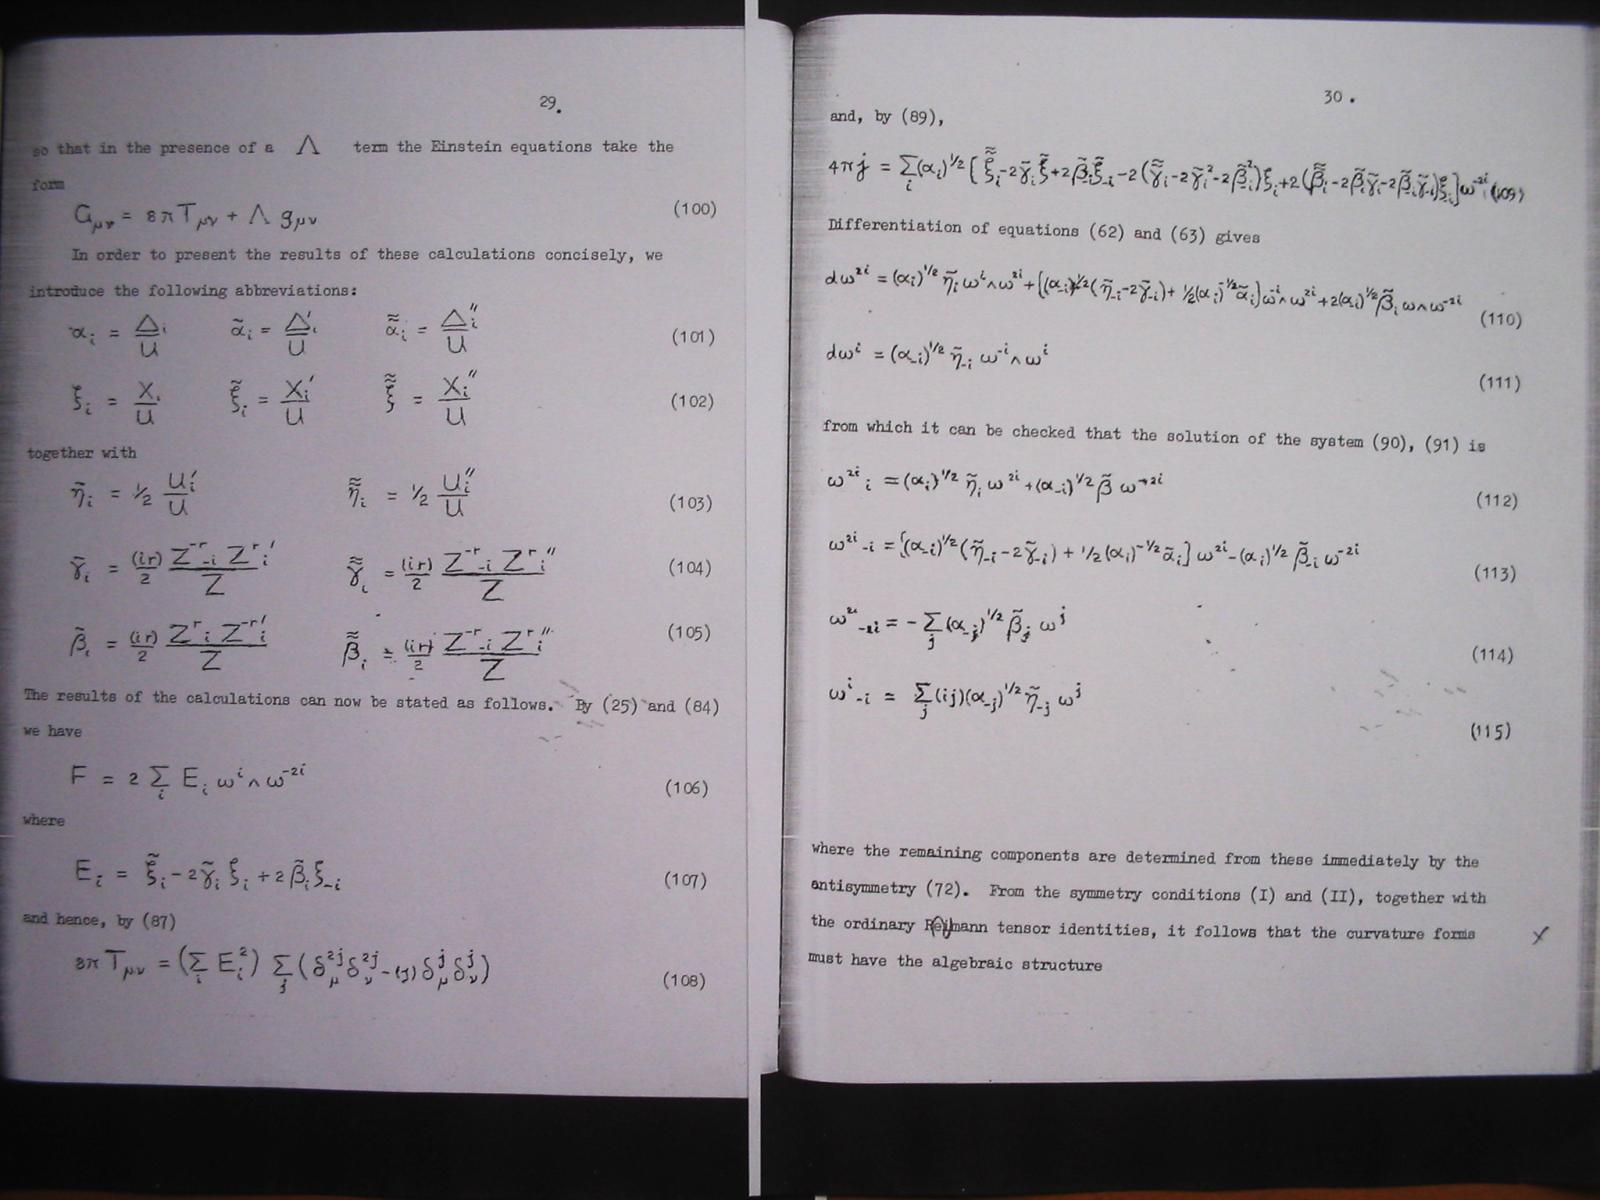 29.
so that in the presence of a Λ term the Einstein equations take the
form
G_μν = 8πT_μν + Λ g_μν (100)
In order to present the results of these calculations concisely, we
introduce the following abbreviations:
α_i = Δ_i/U α̃_i = Δ_i'/U α̃̃_i = Δ_i''/U (101)
ξ_i = X_i/U ξ̃_i = X_i'/U ξ̃̃ = X_i''/U (102)
together with
η̃_i = 1/2 U_i'/U η̃̃_i = 1/2 U_i''/U (103)
γ̃_i = (ir)/2 Z^-r_-i Z^r_i'/Z γ̃̃_i = (ir)/2 Z^-r_-i Z^r_i''/Z (104)
β̃_i = (ir)/2 Z^r_i Z^-r_i'/Z β̃̃_i = (ir)/2 Z^-r_-i Z^r_i''/Z (105)
The results of the calculations can now be stated as follows. By (25) and (84)
we have
F = 2 Σ_i E_i ω^i ∧ ω^-2i (106)
where
E_i = ξ̃_i - 2γ̃_i ξ_i + 2β̃_i ξ_-i (107)
and hence, by (87)
8π T_μν = (Σ_i E_i^2) Σ_j (δ^2j_μ δ^2j_ν - (j) δ^j_μ δ^j_ν) (108)
30.
and, by (89),
4πj = Σ_i (α_i)^1/2 [ξ̃̃_i - 2γ̃_i ξ̃ + 2β̃_i ξ̃_-i - 2(γ̃̃_i - 2γ̃_i^2 - 2β̃_i^2)ξ_i + 2(β̃̃_i - 2β̃_i γ̃_i - 2β̃_i γ̃_-i)ξ_-i] ω^-2i (109)
Differentiation of equations (62) and (63) gives
dω^2i = (α_i)^1/2 η̃_i ω^i ∧ ω^2i + [(α_-i)^1/2 (η̃_-i - 2γ̃_-i) + 1/2(α_i)^-1/2 α̃_i] ω^-i ∧ ω^2i + 2(α_i)^1/2 β̃_i ω ∧ ω^-2i (110)
dω^i = (α_-i)^1/2 η̃_-i ω^-i ∧ ω^i (111)
from which it can be checked that the solution of the system (90), (91) is
ω^2i_i = (α_i)^1/2 η̃_i ω^2i + (α_-i)^1/2 β̃ ω^-2i (112)
ω^2i_-i = [(α_-i)^1/2 (η̃_-i - 2γ̃_-i) + 1/2 (α_i)^-1/2 α̃_i] ω^2i - (α_i)^1/2 β̃_-i ω^-2i (113)
ω^2i_-2i = - Σ_j (α_-j)^1/2 β̃_j ω^j (114)
ω^i_-i = Σ_j (ij)(α_-j)^1/2 η̃_-j ω^j (115)
where the remaining components are determined from these immediately by the
antisymmetry (72). From the symmetry conditions (I) and (II), together with
the ordinary Reimann tensor identities, it follows that the curvature forms
must have the algebraic structure